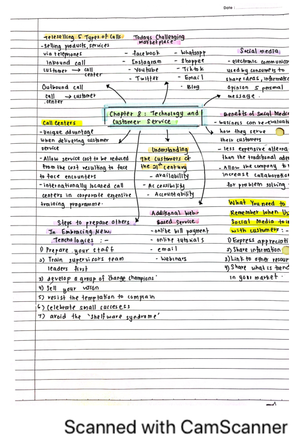 Date :
- teleselling 5 Types of Calls
- selling products, services
via telephones
Inbound call
customer → call center
Outbound call
call center → customer
Todays Challenging
marketplace
- Facebook
- Instagram
- Youtube
- Twitter
- Whatsapp
- Shopee
- Tiktok
- Email
- Blog
Social media
- electronic
used by consumers to
share ideas, information
opinion & personal
message.
Chapter 8 : Technology and
Customer Service
Call centers
- Unique advantage
when delivering customer
service
- Allow service cost to be reduced
from the cost resulting to face
to face encounters
- internationally located call
centers in corporate expensive
training programme.
Understanding
the customers of
the 21st century
- Availability
- Accessibility
- Accountability
Benefits of Social Media
how they serve
their customers
- less expensive
than the traditional
Allow the company
increase collaboration
for problem solving
Steps to prepare others
In Embracing New
Technologies :-
1) Prepare your staff
2) Train supervisors team
leaders first
3) develop a group of 'change champions'
4) Sell your vision
5) resist the temptation to complain
6) Celebrate small success
7) avoid the 'shelfware syndrome'
Additional Web
Based Service
- online bill payment
- online tutorials
- email
- Webinars
What You Need to
Remember When
Social Media to
with customers :-
1) Express appreciation
2) Share information
3) Link to other
4) Share what is
in your market.
Scanned with CamScanner